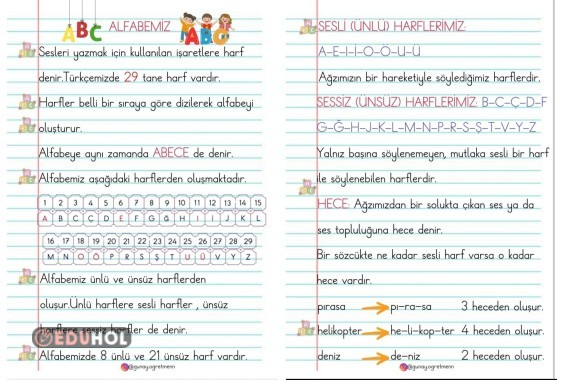 ABC
ALFABEMİZ
ABC
Sesleri yazmak için kullanılan işaretlere harf
denir.Türkçemizde 29 tane harf vardır.
Harfler belli bir sıraya göre dizilerek alfabeyi
oluşturur.
Alfabeye aynı zamanda ABECE de denir.
Alfabemiz aşağıdaki harflerden oluşmaktadır.
1 2 3 4 5 6 7 8 9 10 11 12 13 14 15
A B C Ç D E F G Ğ H I İ J K L
16 17 18 19 20 21 22 23 24 25 26 27 28 29
M N O Ö P R S Ş T U Ü V Y Z
Alfabemiz ünlü ve ünsüz harflerden
oluşur.Ünlü harflere sesli harfler , ünsüz
harflere sessiz harfler de denir.
EDUHOL
Alfabemizde 8 ünlü ve 21 ünsüz harf vardır.
@gunay.ogretmenn
SESLİ (ÜNLÜ) HARFLERİMİZ:
A-E-I-İ-O-Ö-U-Ü
Ağzımızın bir hareketiyle söylediğimiz harflerdir.
SESSİZ (ÜNSÜZ) HARFLERİMİZ: B-C-Ç-D-F
G-Ğ-H-J-K-L-M-N-P-R-S-Ş-T-V-Y-Z
Yalnız başına söylenemeyen, mutlaka sesli bir harf
ile söylenebilen harflerdir.
HECE: Ağzımızdan bir solukta çıkan ses ya da
ses topluluğuna hece denir.
Bir sözcükte ne kadar sesli harf varsa o kadar
hece vardır.
pırasa pı-ra-sa 3 heceden oluşur.
helikopter he-li-kop-ter 4 heceden oluşur.
deniz de-niz 2 heceden oluşur.
@gunay.ogretmenn